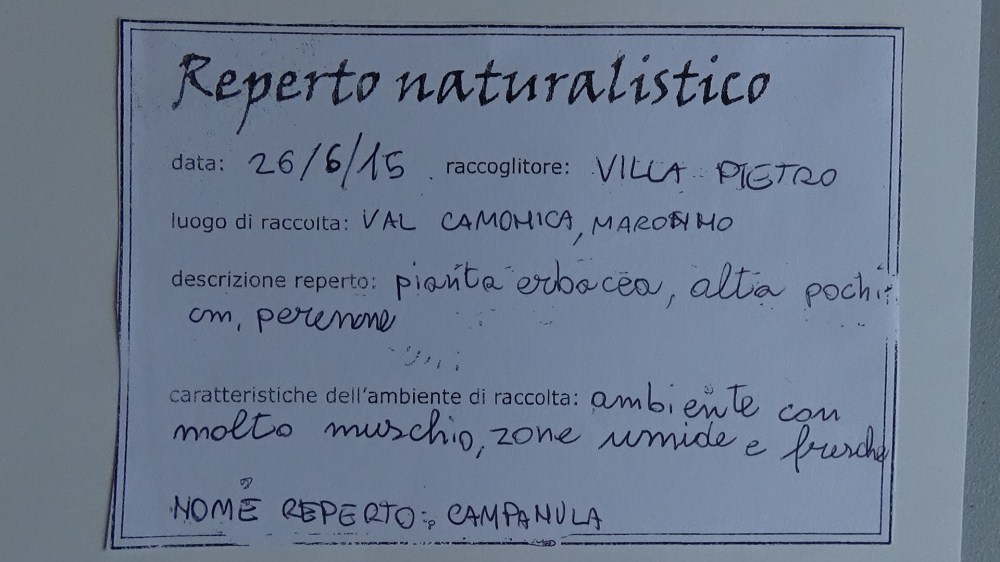 Reperto naturalistico
data: 26/6/15 raccoglitore: VILLA PIETRO
luogo di raccolta: VAL CAMONICA, MARONNO
descrizione reperto: pianta erbacea, alta pochi
cm, perenne
caratteristiche dell'ambiente di raccolta: ambiente con
molto muschio, zone umide e fresche
NOME REPERTO: CAMPANULA